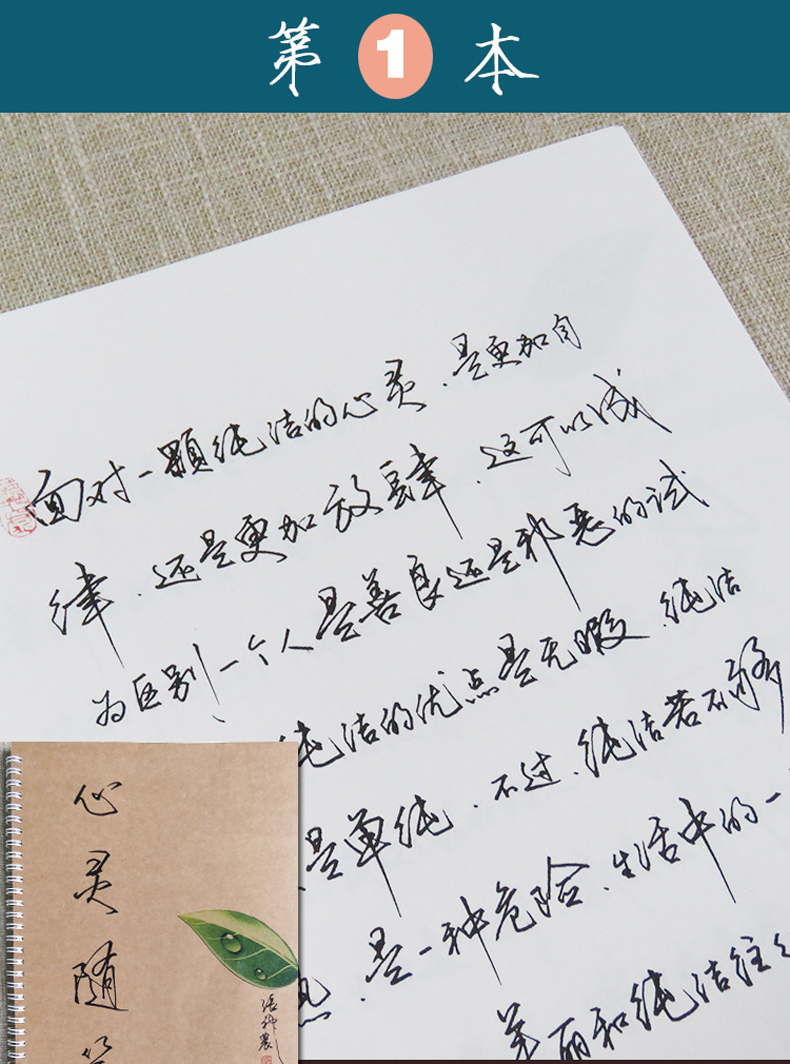 第1本
面对一颗纯洁的心灵，是更加自
律，还是更加放肆，这可以成
为区别一个人是善良还是邪恶的试
纯洁的优点是无暇，纯洁
是单纯，不过，纯洁若不
是一种危险，生活中的一
美丽和纯洁往
心灵随